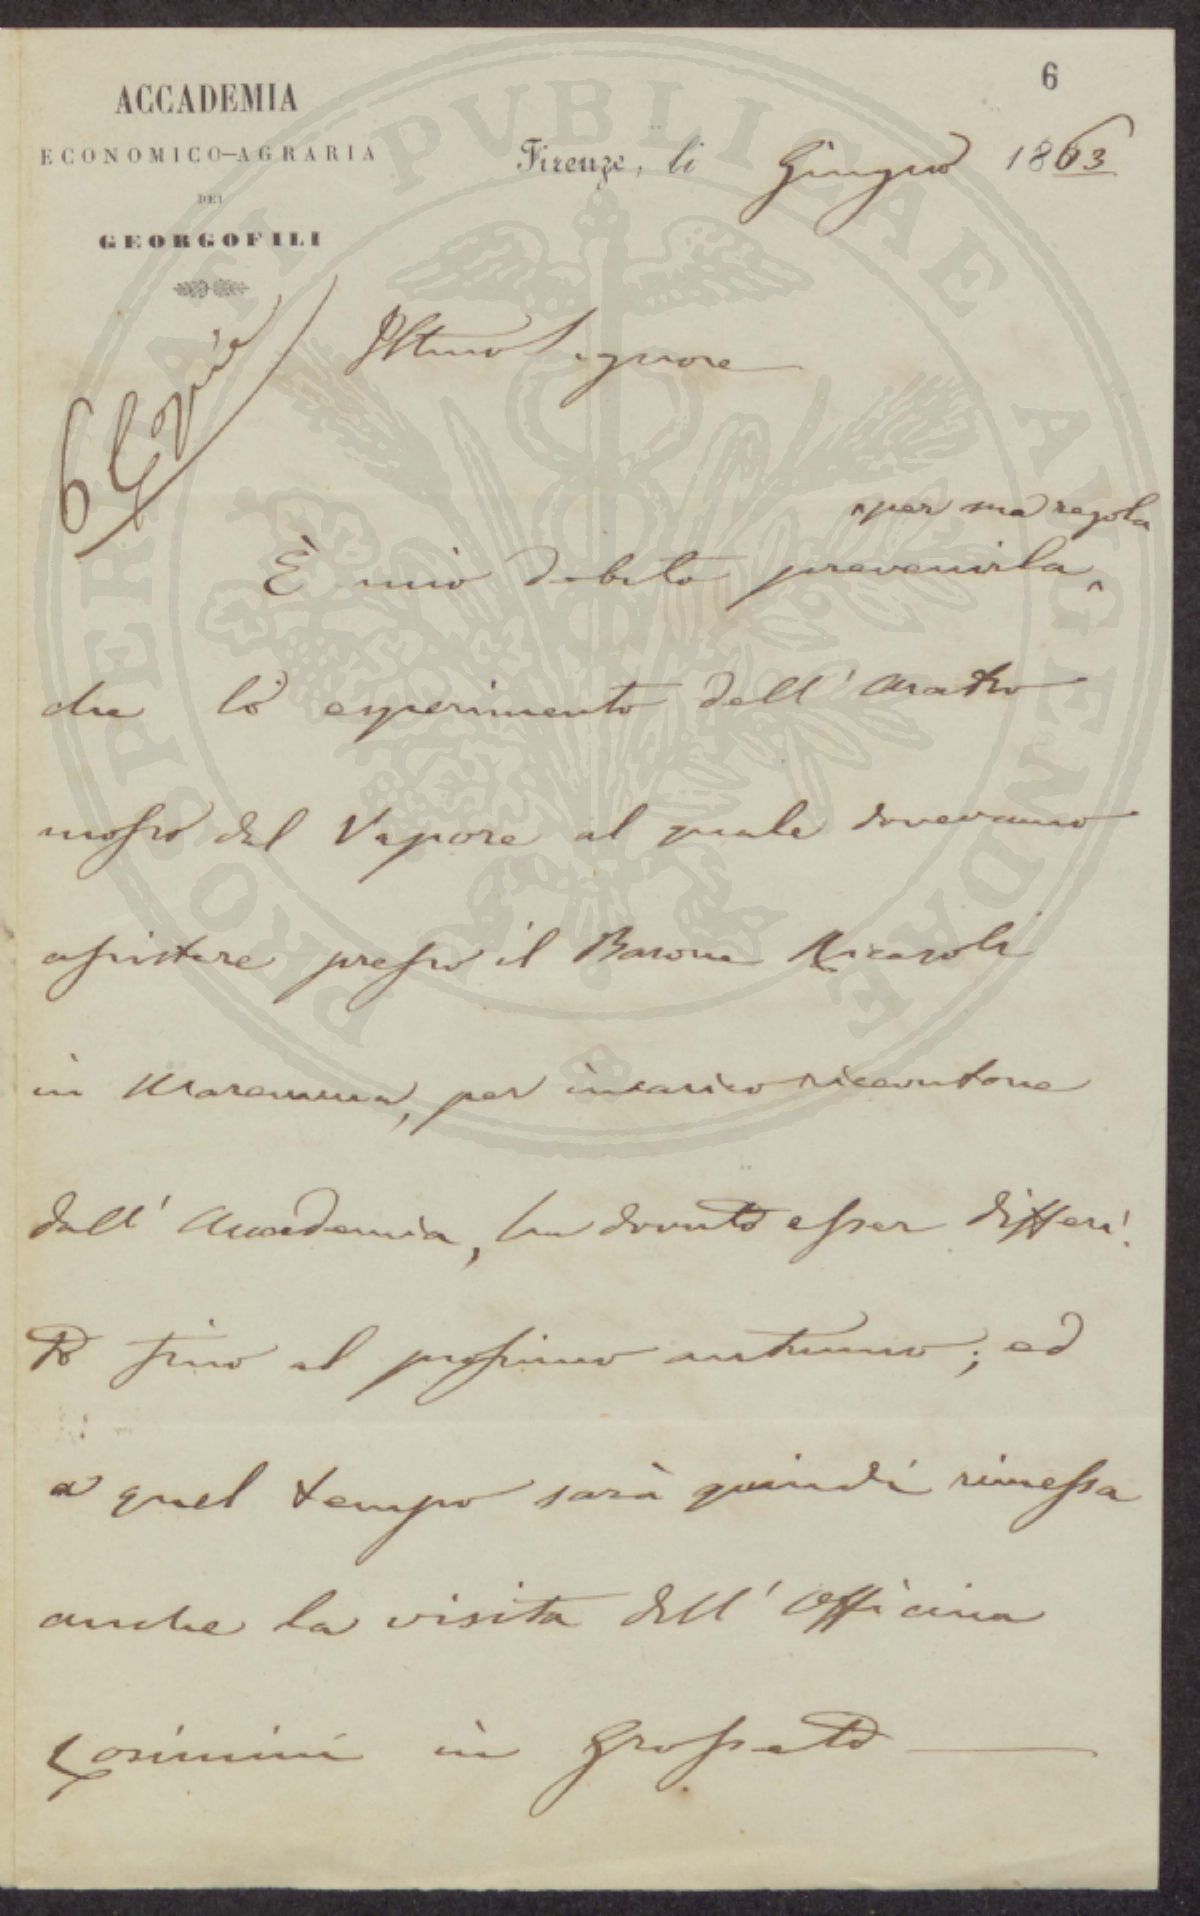 6
ACCADEMIA
ECONOMICO-AGRARIA
DEI
GEORGOFILI
Firenze, li Giugno 1863
6 Copie
Illmo Signore
per sua regola
È mio debito prevenirla
che lo esperimento dell' Aratro
mosso dal Vapore al quale dovevamo
assistere presso il Barone Ricasoli
in Maremma, per incarico ricevutone
dall' Accademia, ha dovuto esser differi
to fino al prossimo autunno; ed
a quel tempo sarà quindi rimessa
anche la visita dell' Officina
Cosimini in Grosseto
PROSPERITATI PUBLICAE AUGENDAE